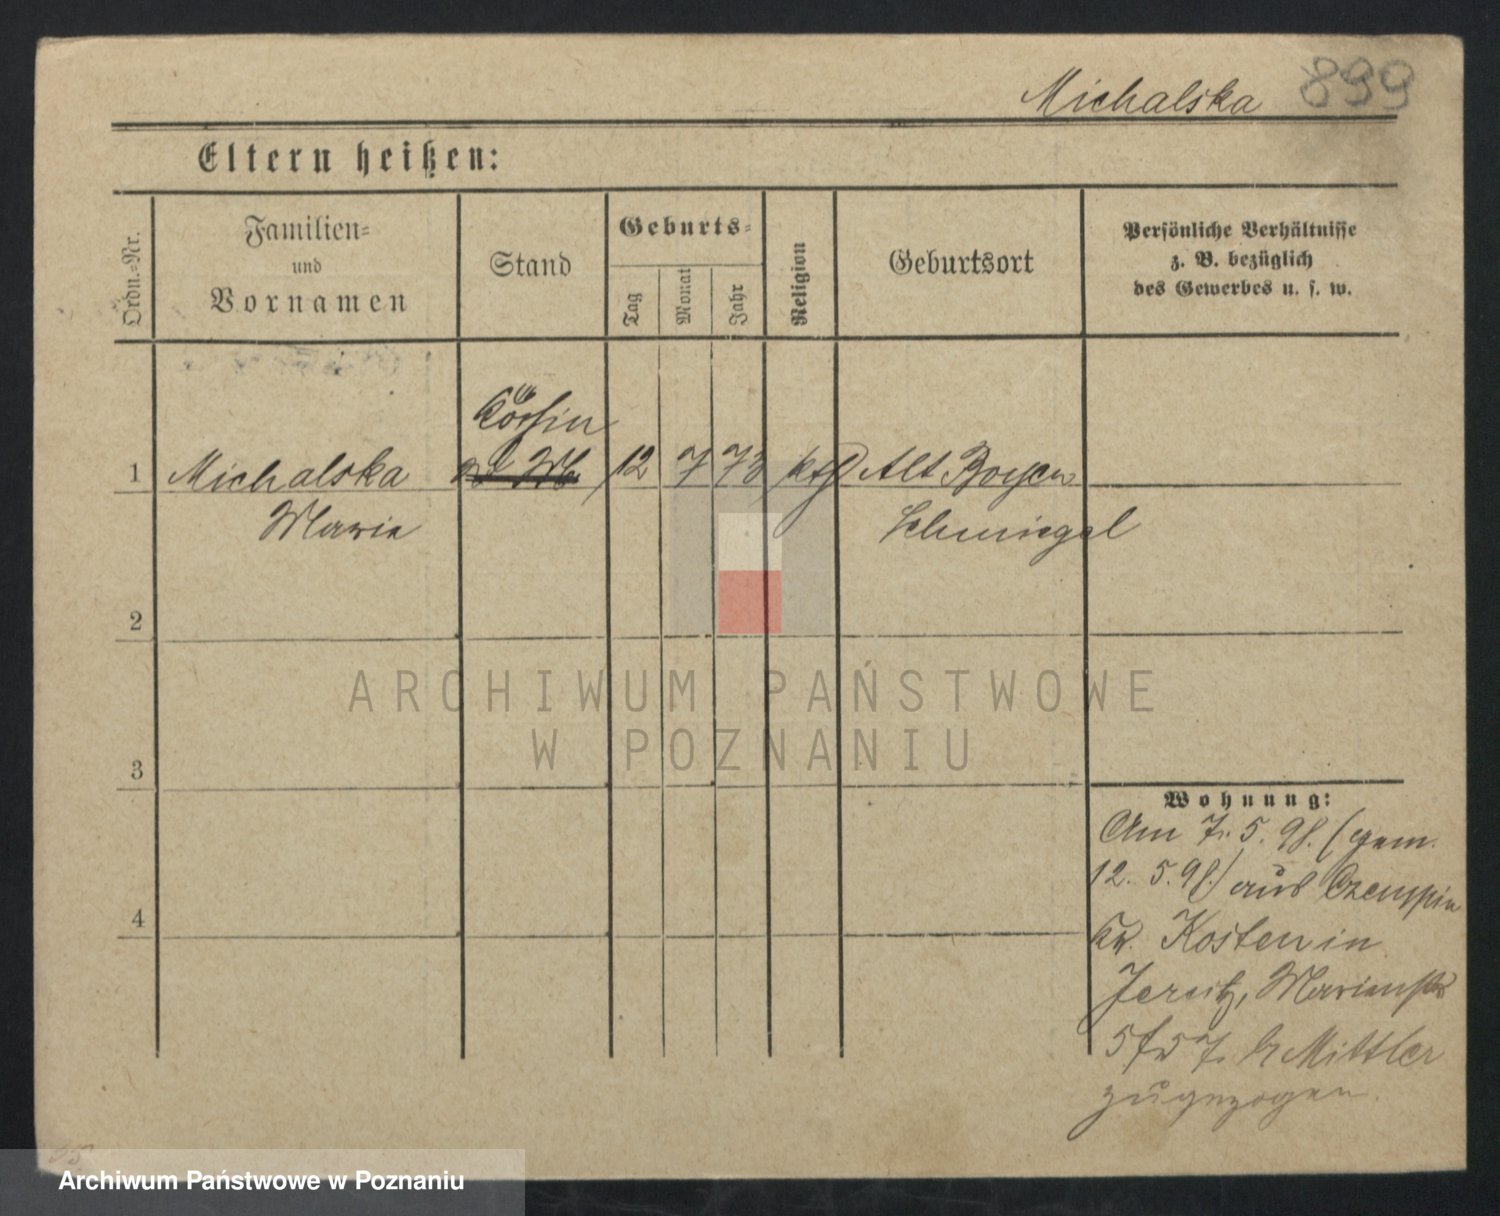 Michalska 899
Eltern heißen:
Ordn.-Nr.
Familien-
und
Vornamen
Stand
Geburts-
Tag
Monat
Jahr
Religion
Geburtsort
Persönliche Verhältnisse
z. B. bezüglich
des Gewerbes u. s. w.
Köchin
1 Michalska 12 7 73 kth Alt Boyen
Marie Schmiegel
2
ARCHIWUM PAŃSTWOWE
W POZNANIU
3
Wohnung:
Am 7. 5. 98. (gem.
12. 5. 98.) aus Czempin
Kr. Kosten in
Jersitz, Marienstr
5 b Mittler
zugezogen.
4
Archiwum Państwowe w Poznaniu